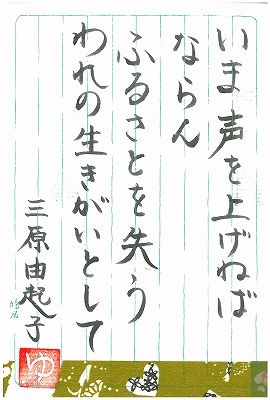 いま声を上げねば
ならん
ふるさとを失う
われの生きがいとして
三原由起子
ゆ